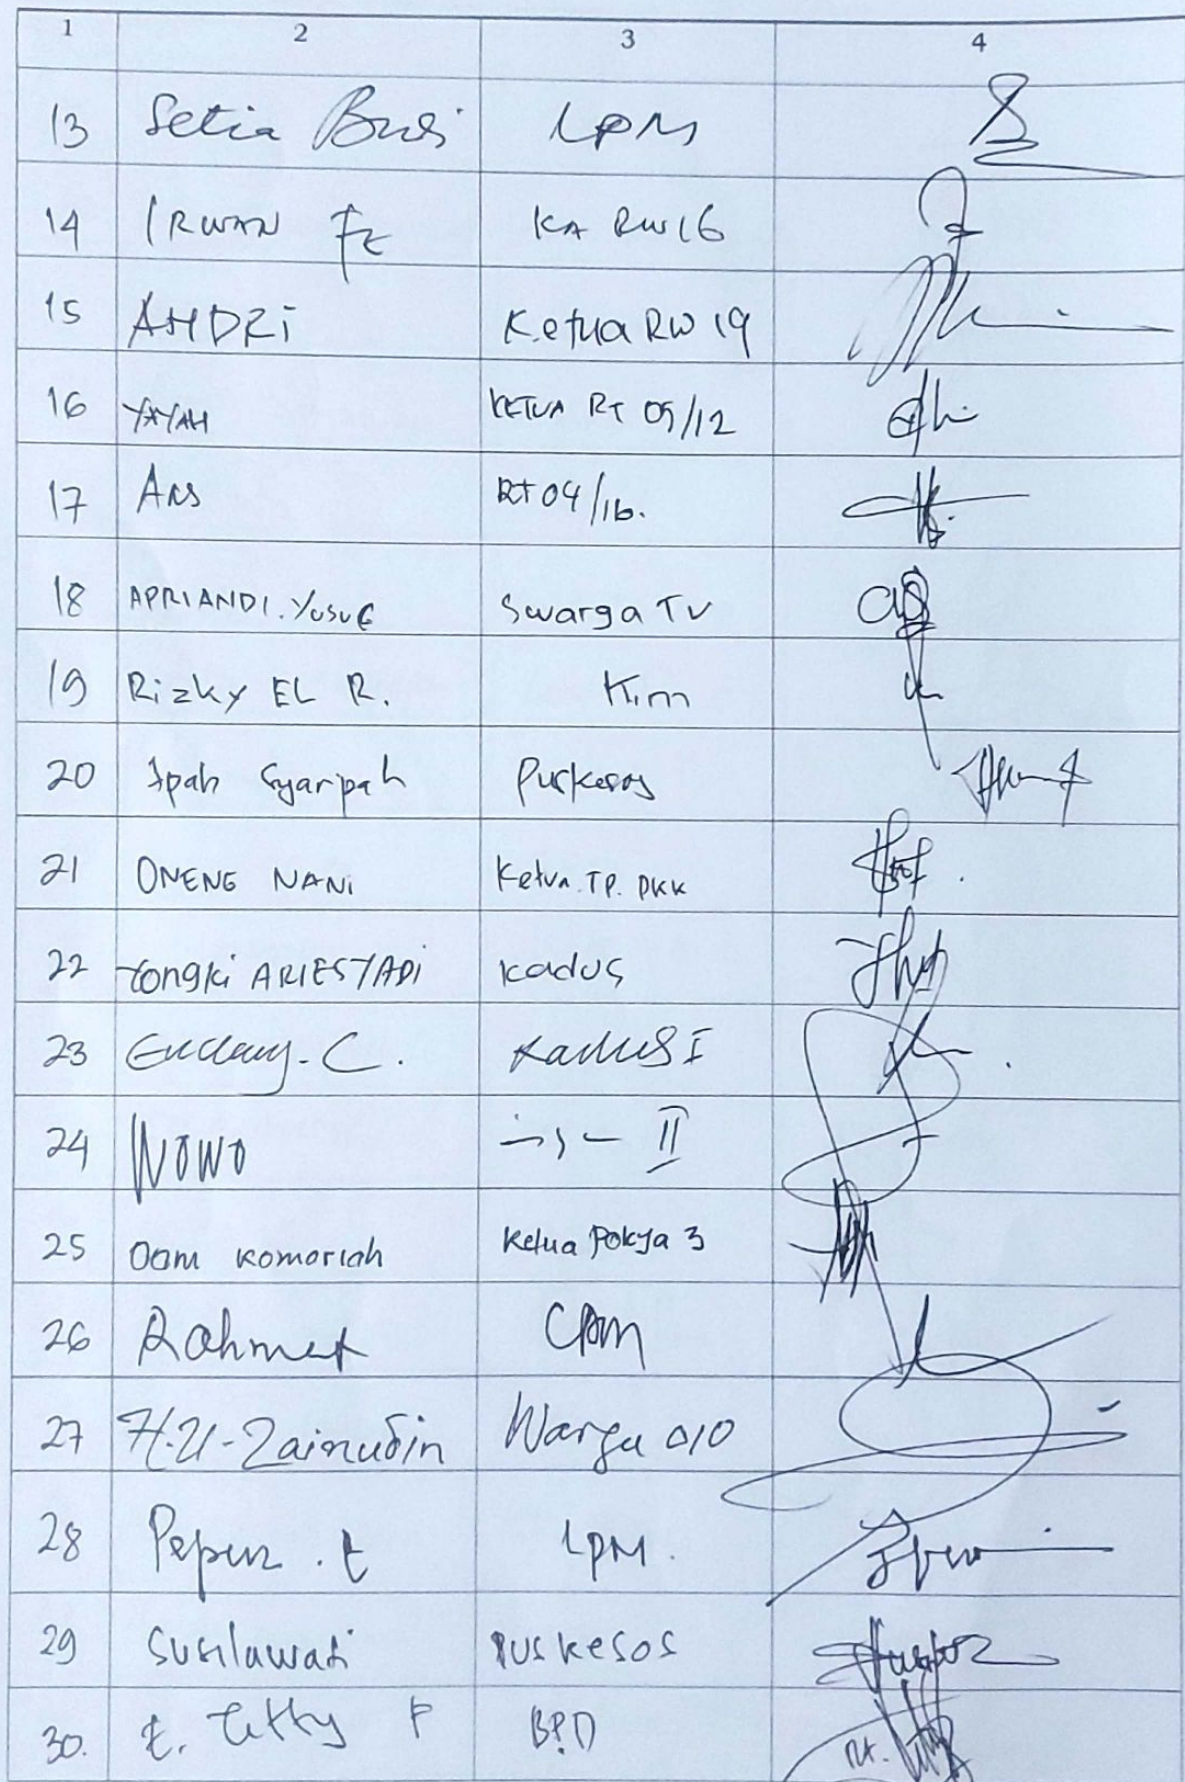 1 2 3 4
13 Setia Budi LPM
14 IRWAN FZ KA RW 16
15 ANDRI Ketua RW 19
16 YAYAH KETUA RT 05/12
17 RT 04/16.
18 APRIANDI. YUSUF Swarga TV
19 Rizky EL R. Kim
20 Ipah Syaripah Puskesos
21 ONENG NANI Ketua. TP. PKK
22 Yongki ARIESTADI Kadus
23 Endang. C. Kadus I
24 WOWO II
25 Oom Komariah Ketua Pokja 3
26 Rahmat LPM
27 H.U. Zainudin Warga 010
28 LPM.
29 Susilawati PUSKESOS
30. E. Tetty P BPD